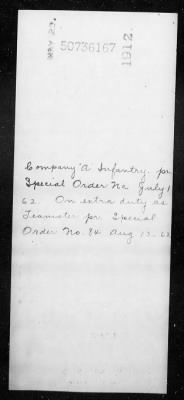 MAY 29.
50736167
1912.
Company "A Infantry. pr
Special Order No July 1
62. On extra duty as
Teamster pr. Special
Order No. 84 Aug 13-62